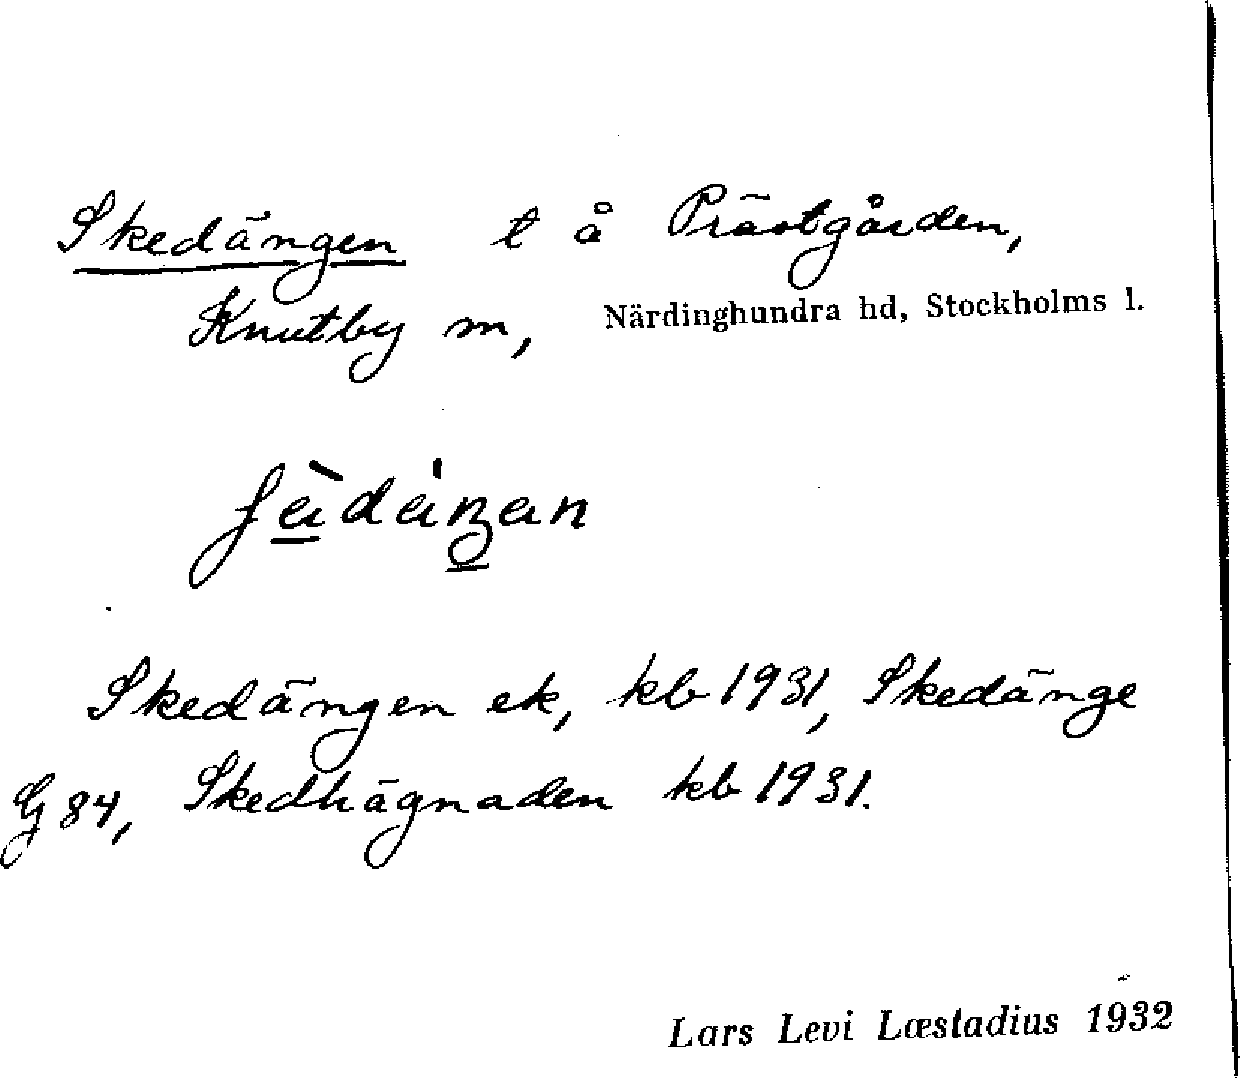 Skedängen t å Prästgården,
Knutby sn, Närdinghundra hd, Stockholms l.
Skedängen ek, kb 1931, Skedänge
G 84, Skedhägnaden kb 1931.
Lars Levi Læstadius 1932